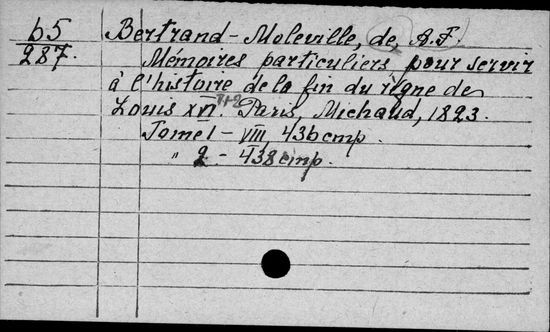 65 Bertrand-Moleville, de, A.F.
287. Mémoires particuliers pour servir
à l'histoire de la fin du règne de
Louis XVI. T.1+2 Paris, Michaud, 1823.
Tome 1 - VIII, 436 стр.
" 2 - 438 стр.